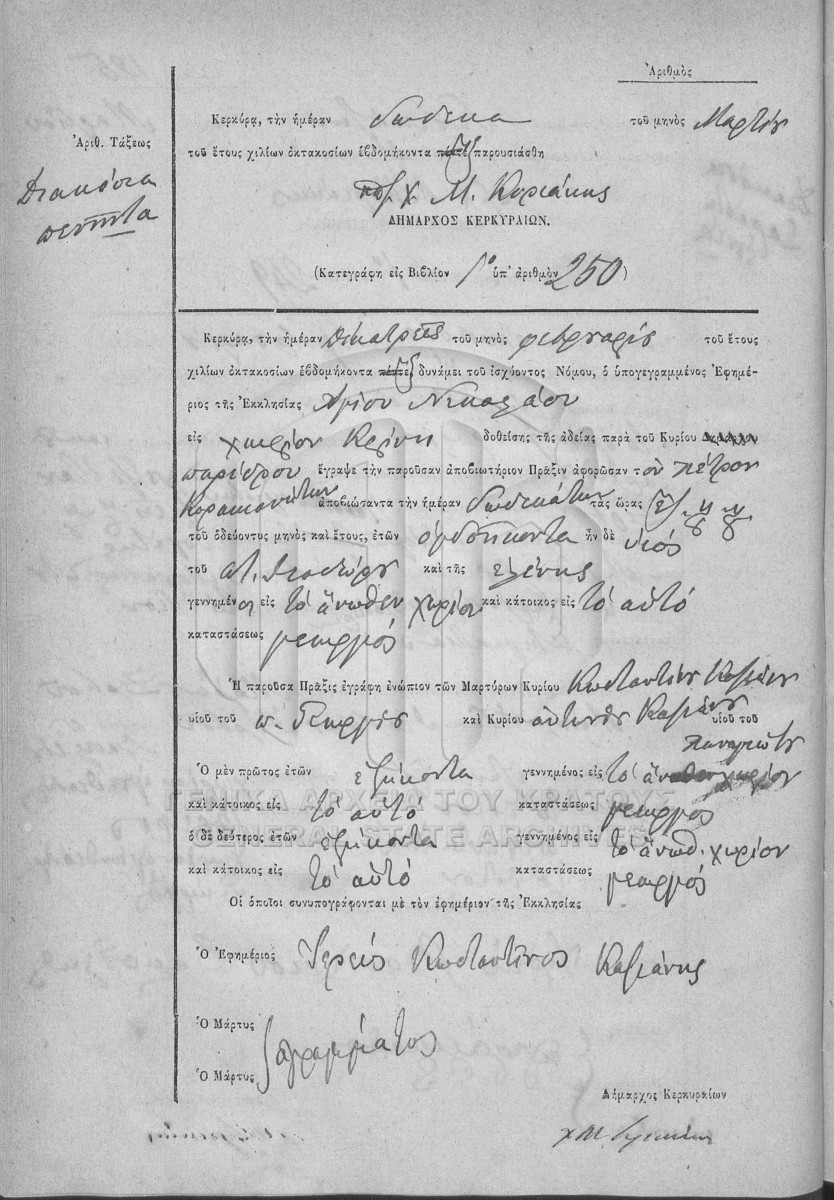 Ἀριθμὸς
Κερκύρᾳ, τὴν ἡμέραν δώδεκα τοῦ μηνὸς Μαρτίου
Ἀριθ. Τάξεως
τοῦ ἔτους χιλίων ὀκτακοσίων ἑβδομήκοντα πέντε ἓξ παρουσιάσθη
Διακόσια
πενῆντα
Χ. Μ. Κυριάκης
ΔΗΜΑΡΧΟΣ ΚΕΡΚΥΡΑΙΩΝ.
(Κατεγράφη εἰς Βιβλίον 1ο ὑπ' ἀριθμὸν 250)
Κερκύρᾳ, τὴν ἡμέραν δεκατρεῖς τοῦ μηνὸς φεβρουαρίου τοῦ ἔτους
χιλίων ὀκτακοσίων ἑβδομήκοντα πέντε ἓξ δυνάμει τοῦ ἰσχύοντος Νόμου, ὁ ὑπογεγραμμένος Ἐφημέ-
ριος τῆς Ἐκκλησίας Ἁγίου Νικολάου
εἰς χωρίον δοθείσης τῆς ἀδείας παρὰ τοῦ Κυρίου
παρέδρου ἔγραψε τὴν παροῦσαν ἀποβιωτήριον Πρᾶξιν ἀφορῶσαν τὸν πέτρον
ἀποβιώσαντα τὴν ἡμέραν δωδεκάτην τὰς ὥρας
τοῦ ὁδεύοντος μηνὸς καὶ ἔτους, ἐτῶν ὀγδοήκοντα ἦν δὲ υἱὸς
τοῦ καὶ τῆς ελένης
γεννημένοι εἰς τὸ ἄνωθεν χωρίον καὶ κάτοικος εἰς τὸ αὐτό
καταστάσεως γεωργός
Ἡ παροῦσα Πρᾶξις ἐγράφη ἐνώπιον τῶν Μαρτύρων Κυρίου Κωσταντίνου Κασιάνη
υἱοῦ τοῦ π. Γεωργίου καὶ Κυρίου αὐτονίου Κασιάνη υἱοῦ τοῦ
παναγιώτου
Ὁ μὲν πρῶτος ἐτῶν εξήκοντα γεννημένος εἰς τὸ ἄνωθεν χωρίον
καὶ κάτοικος εἰς τὸ αὐτό καταστάσεως γεωργός
ὁ δὲ δεύτερος ἐτῶν εξήκοντα γεννημένος εἰς τὸ ἄνωθ. χωρίον
καὶ κάτοικος εἰς τὸ αὐτό καταστάσεως γεωργός
Οἱ ὁποῖοι συνυπογράφονται μὲ τὸν ἐφημέριον τῆς Ἐκκλησίας
Ὁ Ἐφημέριος Ἱερεύς Κωσταντῖνος Κασιάνης
Ὁ Μάρτυς
ἀγράμματος
Ὁ Μάρτυς
Δήμαρχος Κερκυραίων
ΓΕΝΙΚΑ ΑΡΧΕΙΑ ΤΟΥ ΚΡΑΤΟΥΣ
GENERAL STATE ARCHIVES